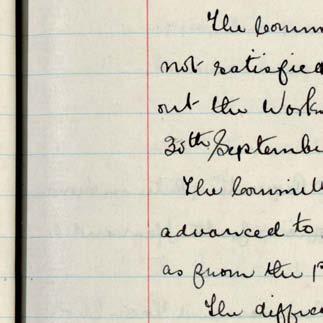 The Comm
not satisfied
out the Work
30th September
The Committe
advanced to
as from the
The differ